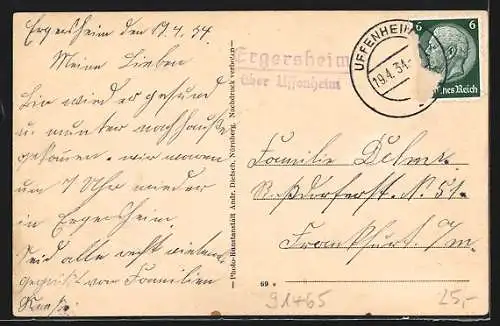 Ergersheim den 19.4.34.
Meine Lieben
Sein wird er gesund
u. munter nachhause
gekommen. wir waren
um 7 Uhr wieder
in Ergersheim.
Seid alle recht vielmals
gegrüßt von Familien
Photo-Kunstanstalt Andr. Dietsch, Nürnberg. Nachdruck verboten.
Ergersheim
über Uffenheim
UFFENHEIM
19.4.34
6 6
Deutsches Reich
Familie
No 51.
Frankfurt a/m.
69
91465
25,-